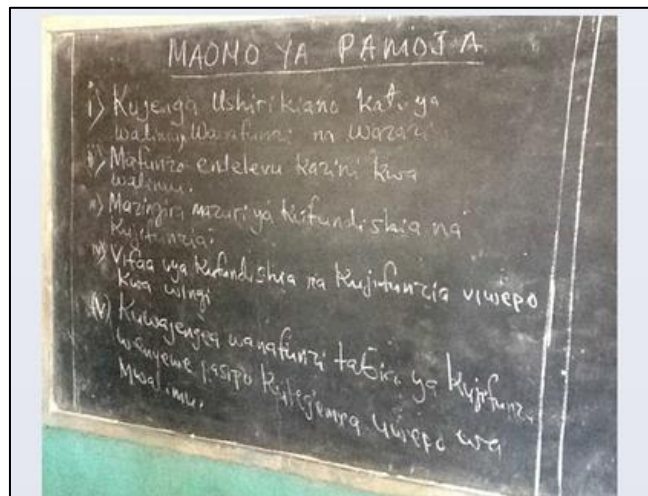 MAONO YA PAMOJA
i) Kujenga Ushirikiano kati ya
walimu, Wanafunzi na Wazazi
ii) Mafunzo endelevu kazini kwa
walimu.
Mazingira mazuri ya kufundishia na
Kujifunzia.
Vifaa vya Kufundishia na Kujifunzia viwepo
Kwa wingi
Kuwajengea wanafunzi tabia ya Kujifunza
wenyewe pasipo Kutegemea uwepo wa
Mwalimu.